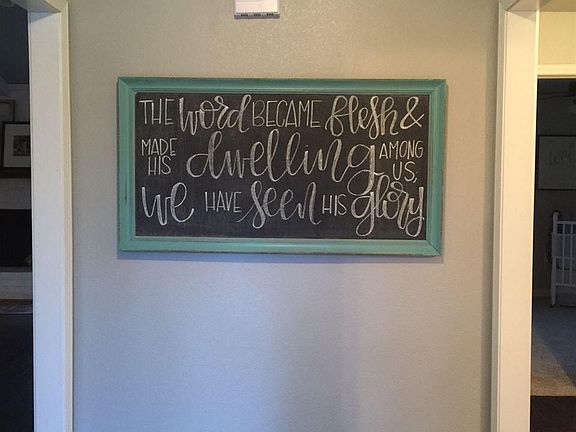 THE word BECAME flesh &
MADE HIS dwelling AMONG US,
we HAVE seen HIS glory